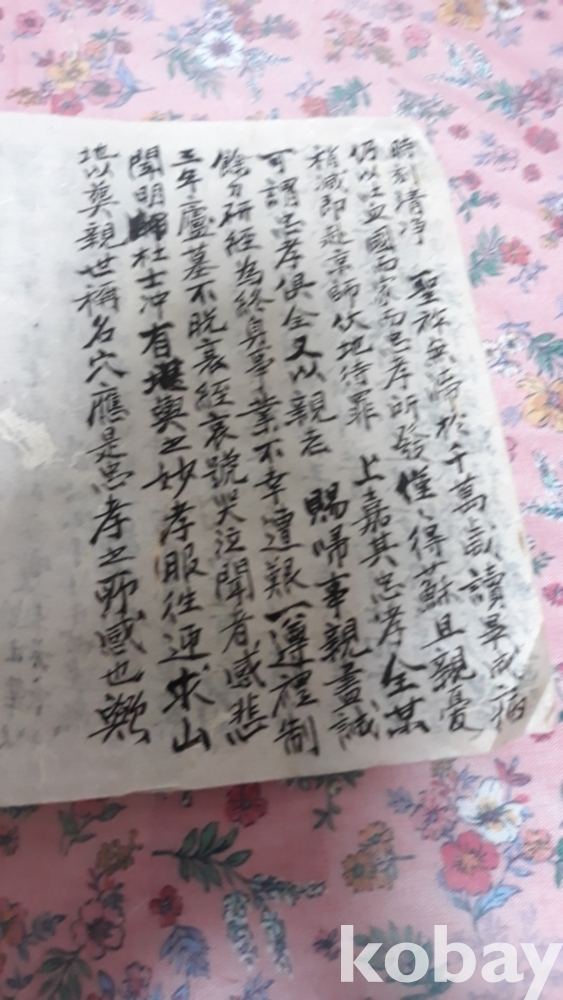 時刻清净 聖祚無啼於千萬歲讀畢成病
仍以吐血國而家而忠孝所發僅〻得蘇且親憂
稍减即赴京師伏地待罪 上嘉其忠孝全某
可謂忠孝俱全又以親老 賜歸事親盡誠
餘力研經為終身事業不幸遭艱一遵禮制
三年廬墓不脫衰絰哀號哭泣聞者感悲
聞明師杜士冲有堪輿之妙孝服徃迎求山
地以奠親世稱名穴應是忠孝之所感也
kobay